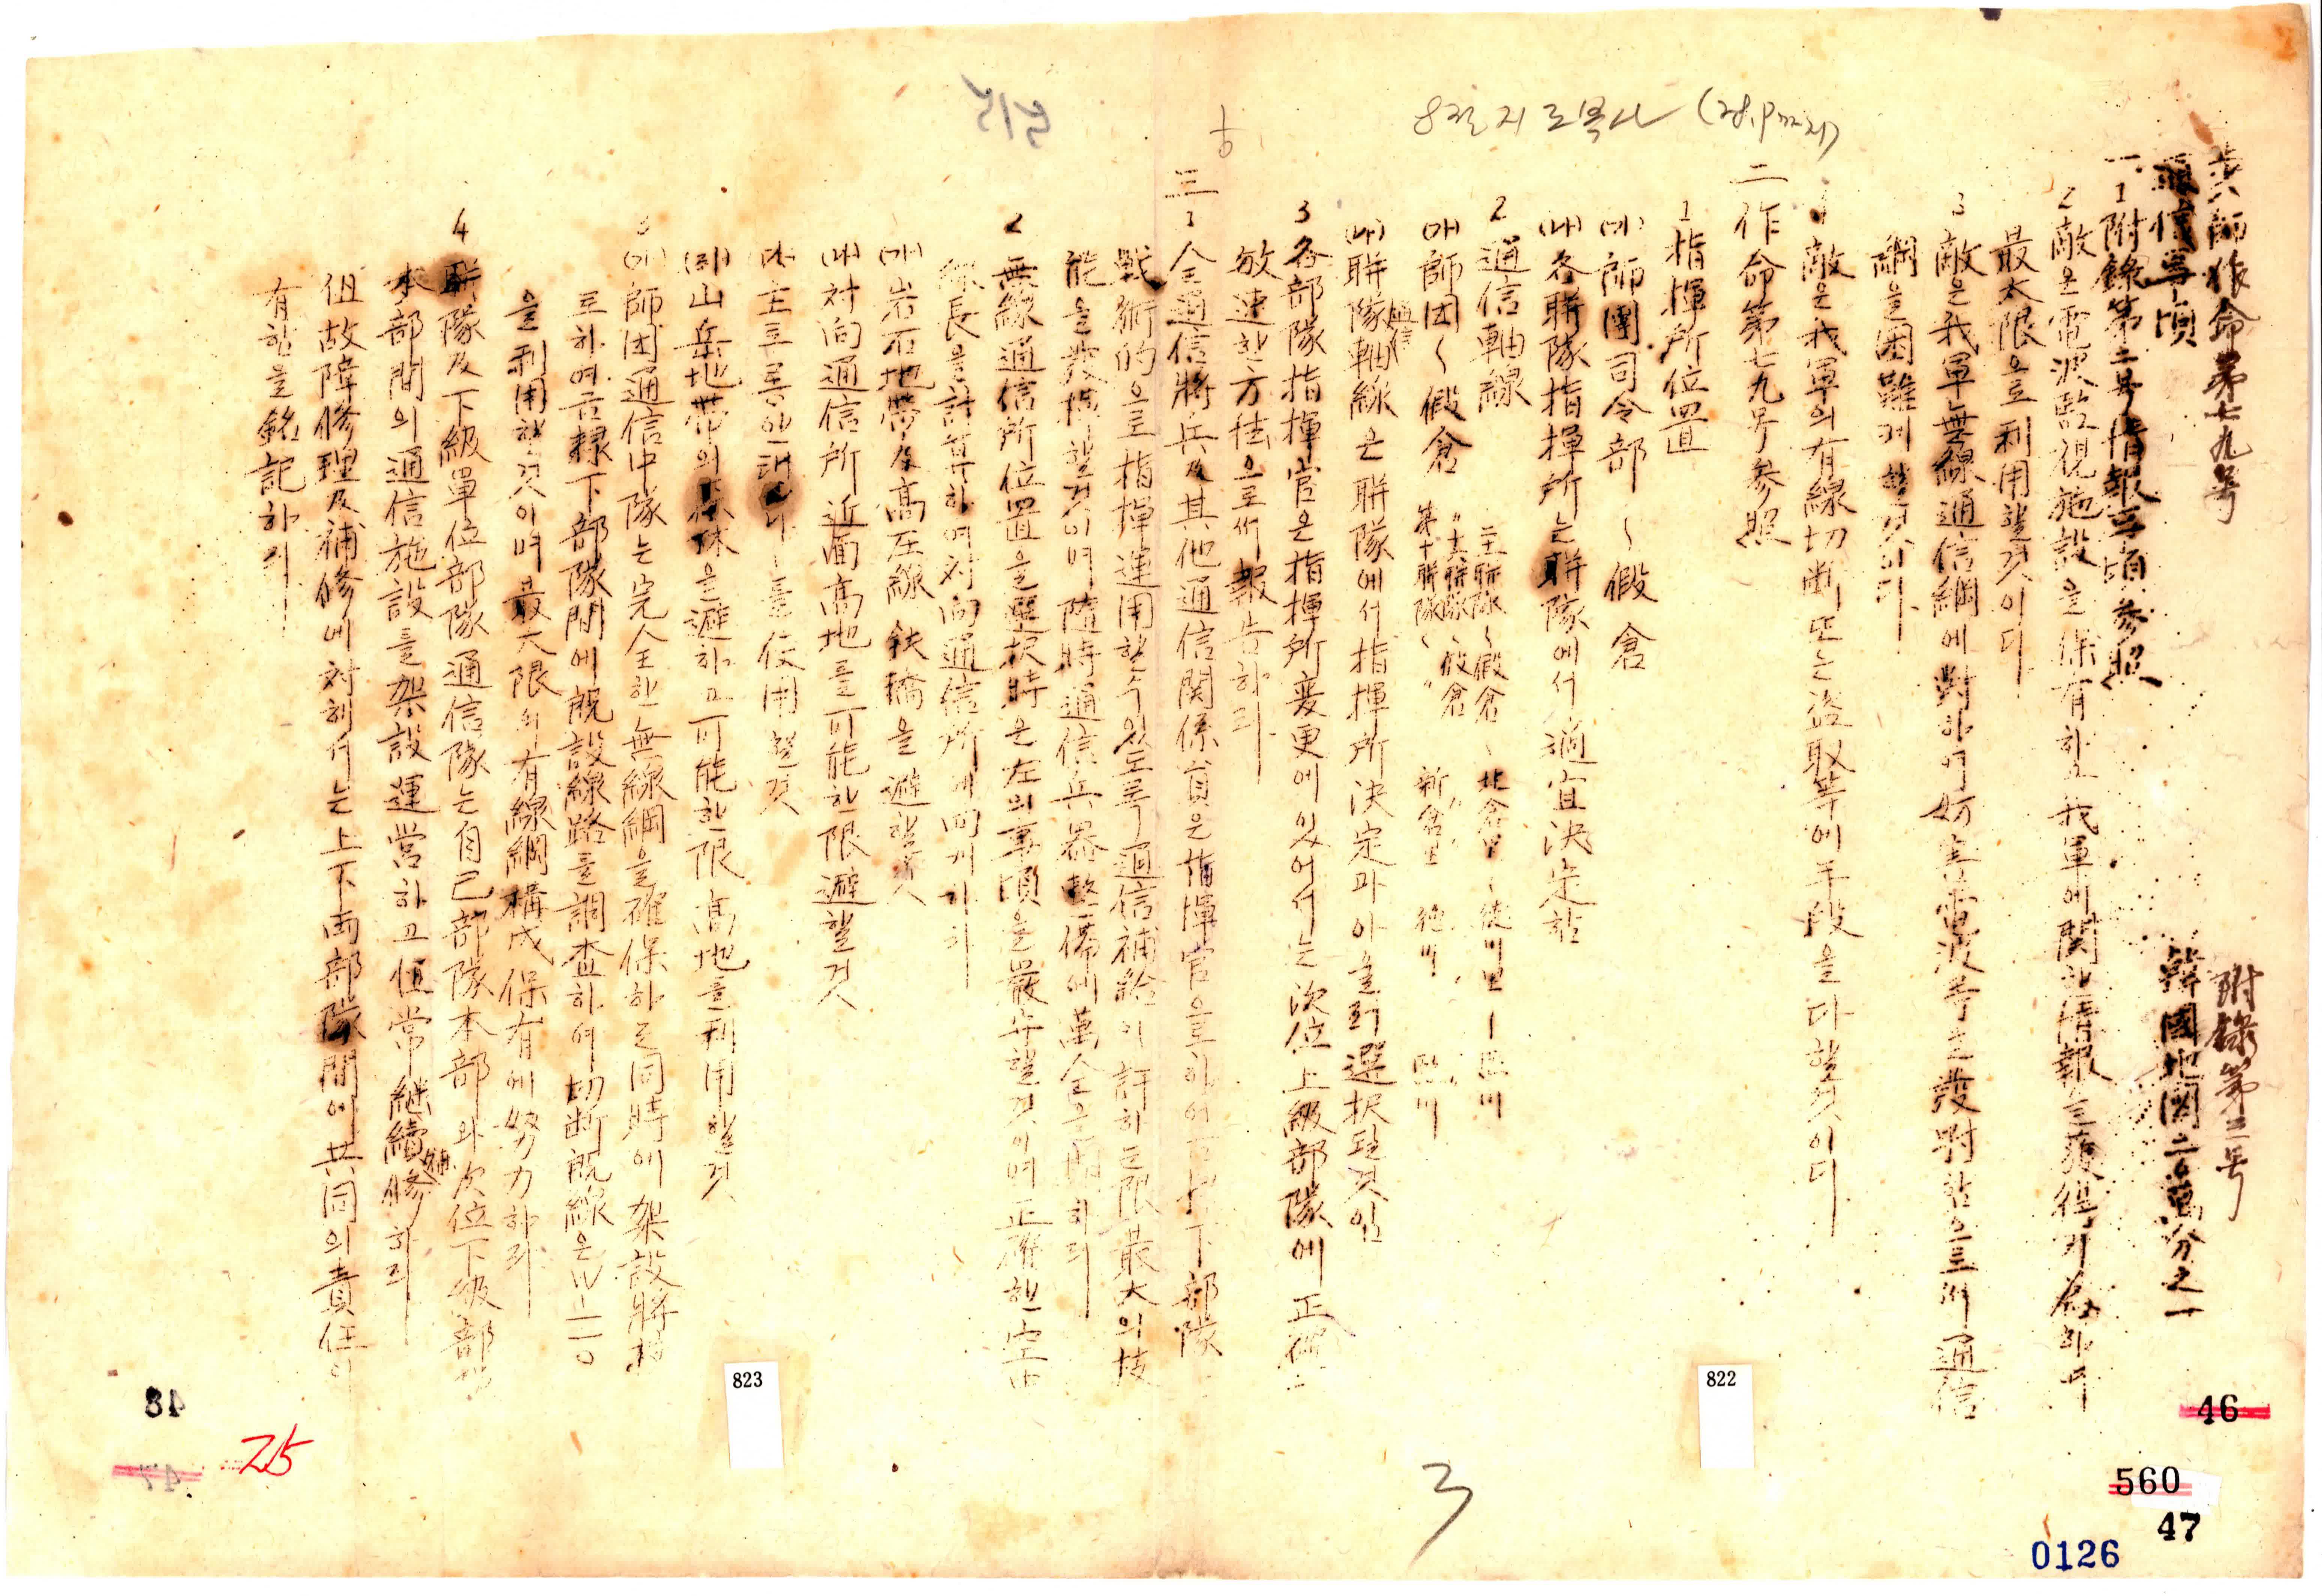 8절지로복사 (28.P까지)
515
步八師作命第七九号
附錄第三号
通信事項
韓國地圖二五萬分之一
一. 1 附錄第二号情報事項參照
2 敵은電波監視施設을保有하고 我軍에関한情報를獲得키爲하여
最大限으로利用할것이다
3 敵은我軍無線通信網에對하여妨害電波等을發射함으로써通信
網을困難케할것이다
4 敵은我軍의有線切断또는盜取等에手段을다할것이다
二 作命第七九号參照
1 指揮所位置
(가) 師團司令部 ~ 假倉
(나) 各聯隊指揮所는聯隊에서適宜決定함
2 通信軸線
(가) 師団 ~ 假倉
二一聯隊 ~ 假倉 ~ 北倉里 ~
〃 十六聯隊 ~ 假倉
第十聯隊 ~ 〃 新倉里 德川
(나) 聯隊通信軸線은聯隊에서指揮所決定과아울러選択될것임
3 各部隊指揮官은指揮所変更에있어서는次位上級部隊에正確
敏速한方法으로써報告하라
三 1 全通信將兵及其他通信関係員은指揮官으로하여금 下部隊
戰術的으로指揮運用할수있도록通信補給이許하는限最大의技
能을發揮할것이며隨時通信兵器整備에萬全을期하라
2 無線通信所位置을選択時은左의事項을嚴守할것이며正確한空中
線長을計算하여対向通信所에向케하라
(가) 岩石地帶及高圧線 鉄橋을避할것
(나) 対向通信所近面高地를可能한限避할것
(다) 主로 를使用할것
(라) 山岳地帶의 을避하고可能한限高地를利用할것
3 (가) 師団通信中隊는完全한無線網을確保하는同時에架設將
로하여금隸下部隊間에旣設線路를調査하여切断旣線은W-110
을利用할것이며最大限의有線網構成保有에努力하라
4 聯隊及下級單位部隊通信隊는自己部隊本部와次位下級部隊
本部間의通信施設를架設運營하고恒常継續補修하라
但故障修理及補修에対해서는上下両部隊間에共同의責任이
有함을銘記하라
822
823
46
560
47
0126
48
47
25
3